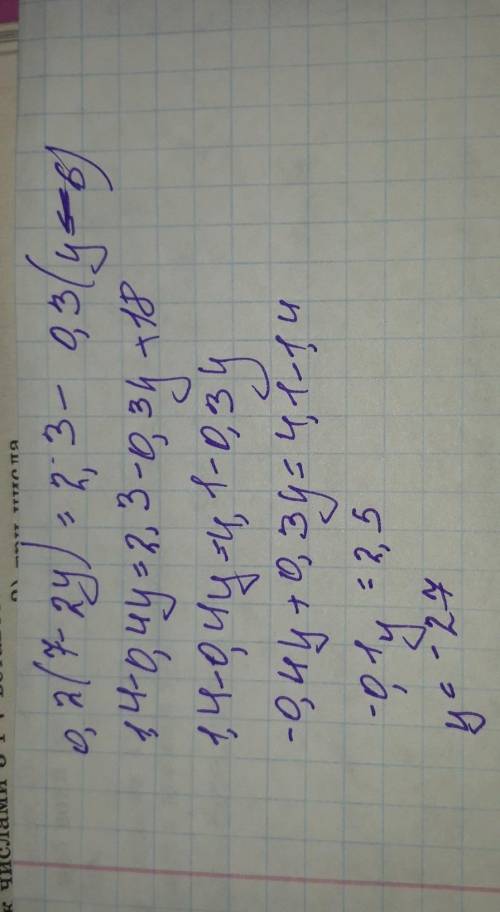 0,2(7-2y)=2,3-0,3(y-6)
1,4-0,4y=2,3-0,3y+18
1,4-0,4y=4,1-0,3y
-0,4y+0,3y=4,1-1,4
-0,1y=2,5
y=-27
числами